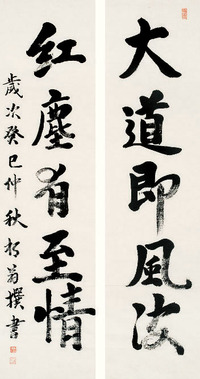 大道即風
紅塵有至情
歲次癸巳仲秋翁撰書